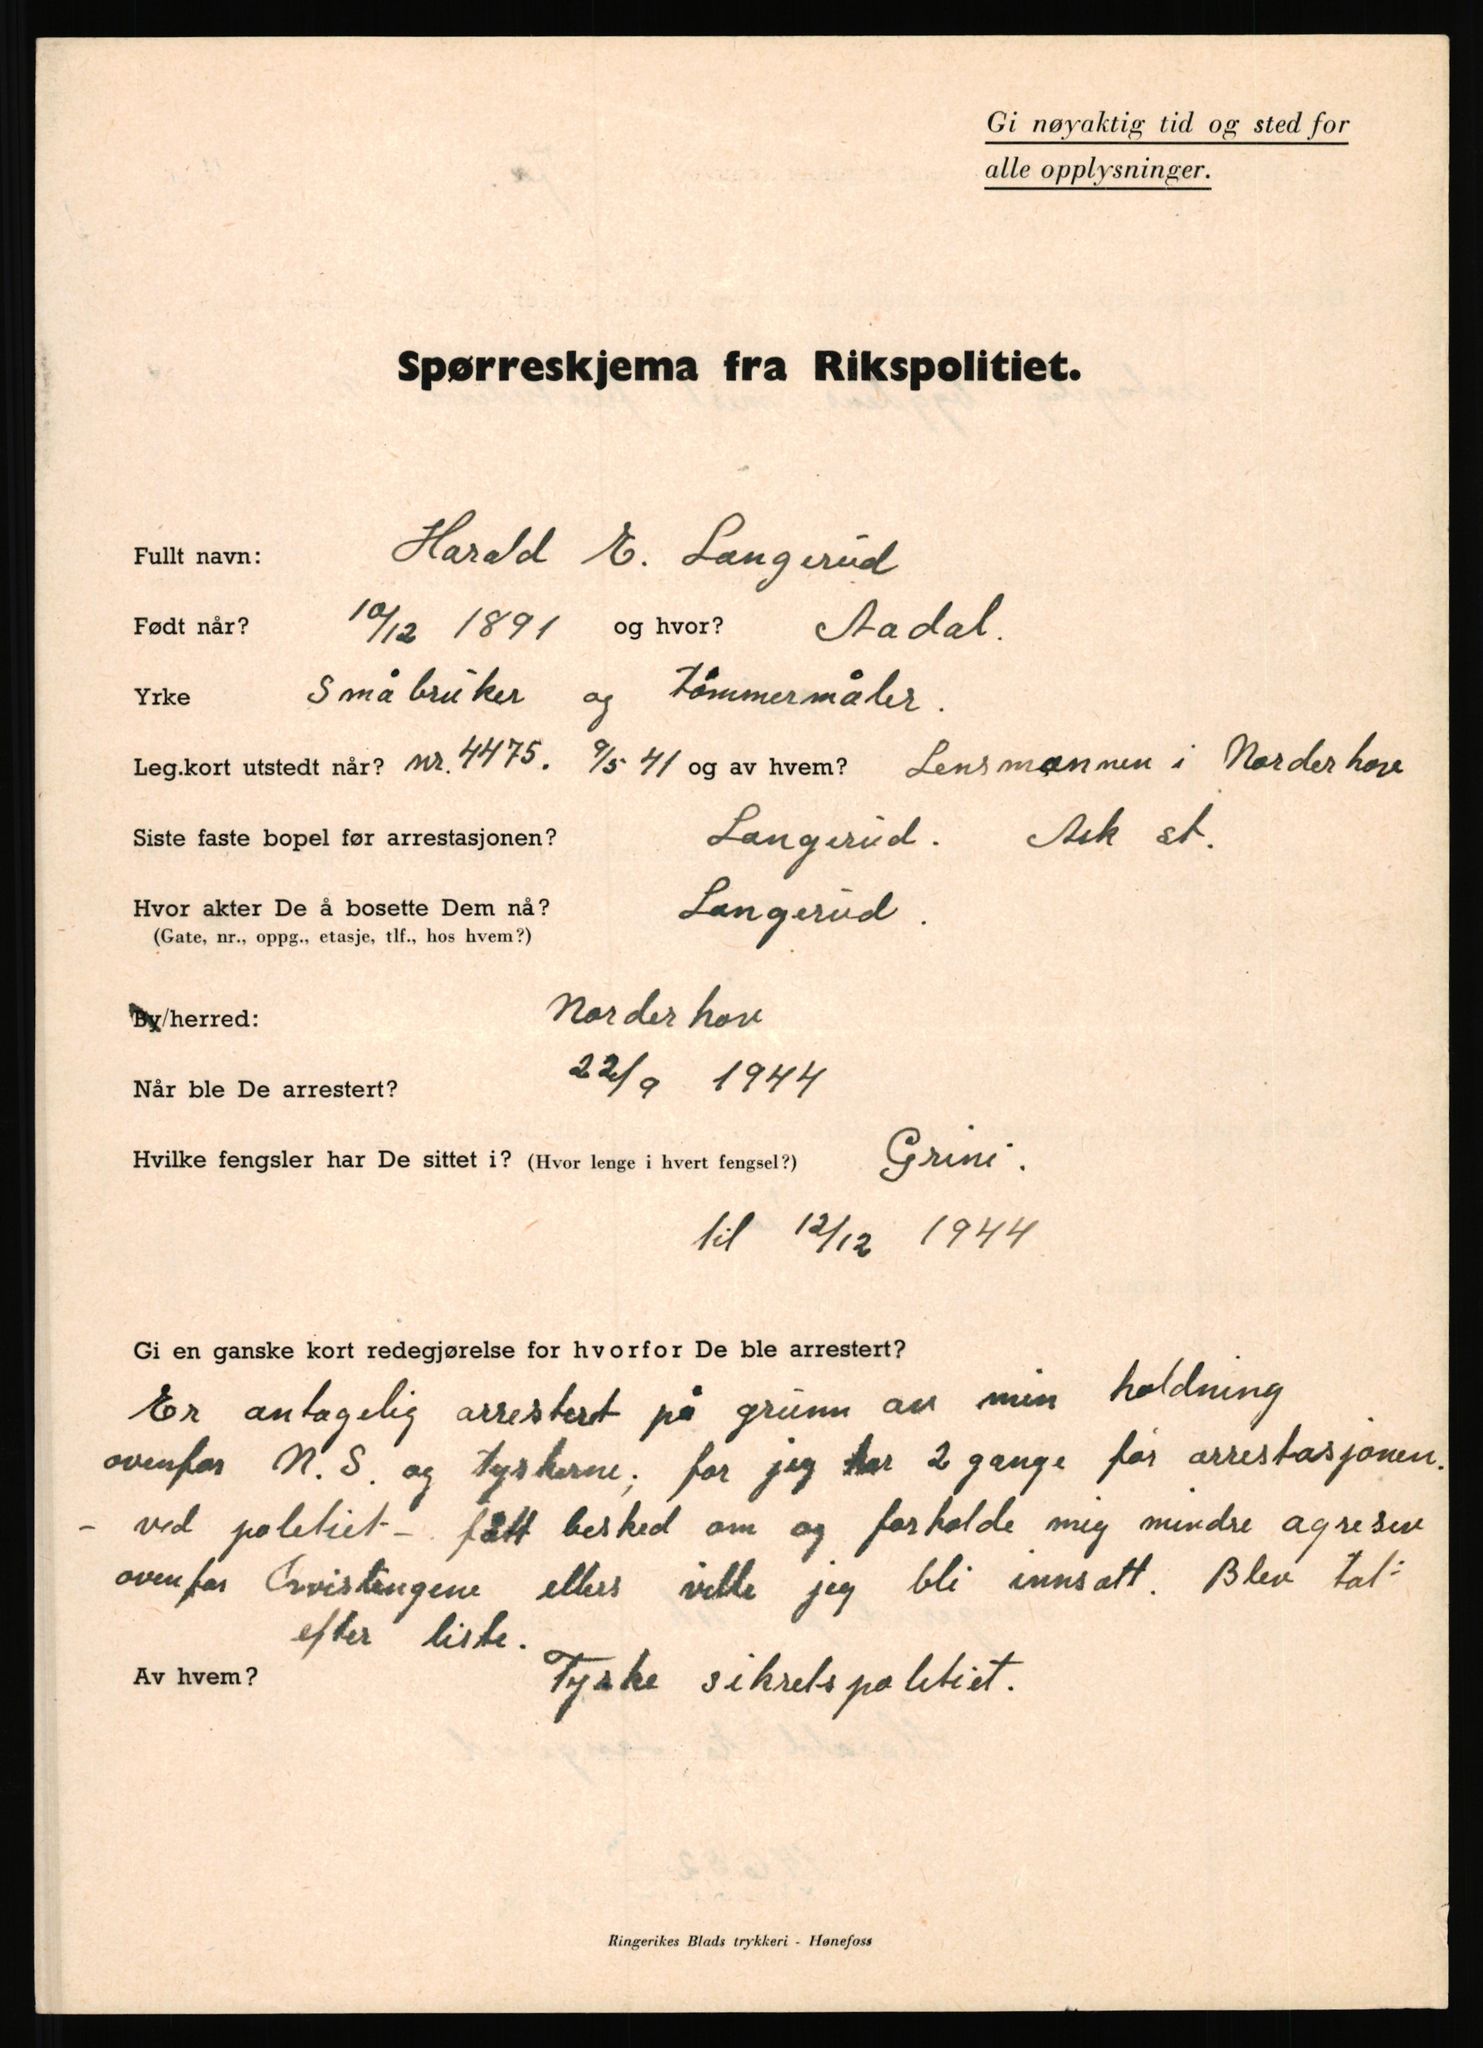 Gi nøyaktig tid og sted for
alle opplysninger.
Spørreskjema fra Rikspolitiet.
Fullt navn: Harald E. Langerud
Født når? 10/12 1891 og hvor? Aadal.
Yrke Småbruker og tømmermåler.
Leg.kort utstedt når? nr. 4475. 9/5 41 og av hvem? Lensmannen i Norderhov
Siste faste bopel før arrestasjonen? Langerud. Ask st.
Hvor akter De å bosette Dem nå? Langerud.
(Gate, nr., oppg., etasje, tlf., hos hvem?)
By/herred: Norderhov
Når ble De arrestert? 22/9 1944
Hvilke fengsler har De sittet i? (Hvor lenge i hvert fengsel?) Grini.
til 12/12 1944
Gi en ganske kort redegjørelse for hvorfor De ble arrestert?
Er antagelig arrestert på grunn av min holdning
ovenfor N.S. og tyskerne; for jeg har 2 gange før arrestasjonen.
- ved politiet - fått besked om og forholde mig mindre agresiv
ovenfor Qvislingene ellers ville jeg bli innsatt. Blev tat
efter liste.
Av hvem? Tyske sikretspolitiet.
Ringerikes Blads trykkeri - Hønefoss